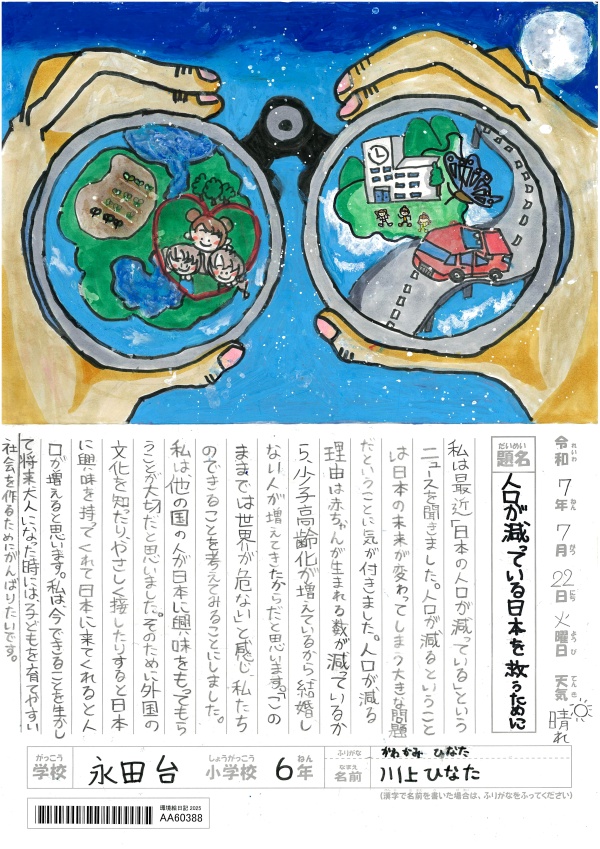 令和7年7月22日火曜日 天気 晴れ
れいわ ねん がつ にち ようび てんき
だいめい
題名 人口が減っている日本を救うために
私は最近「日本の人口が減っている」という
ニュースを聞きました。人口が減るということ
は日本の未来が変わってしまう大きな問題
だということに気が付きました。人口が減る
理由は赤ちゃんが生まれる数が減っているか
ら、少子高齢化が増えているから結婚し
ない人が増えてきたからだと思います。「この
ままでは世界が危ない」と感じ私たち
のできることを考えてみることにしました。
私は他の国の人が日本に興味をもってもら
うことが大切だと思いました。そのために外国の
文化を知ったり、やさしく接したりすると日本
に興味を持ってくれて日本に来てくれると人
口が増えると思います。私は、今できることを生かし
て将来大人になった時には、子どもを育てやすい
社会を作るためにがんばりたいです。
がっこう しょうがっこう ねん ふりがな かわかみ ひなた
学校 永田台 小学校 6年 なまえ 名前 川上ひなた
(漢字で名前を書いた場合は、ふりがなをふってください)
環境絵日記 2025
AA60388